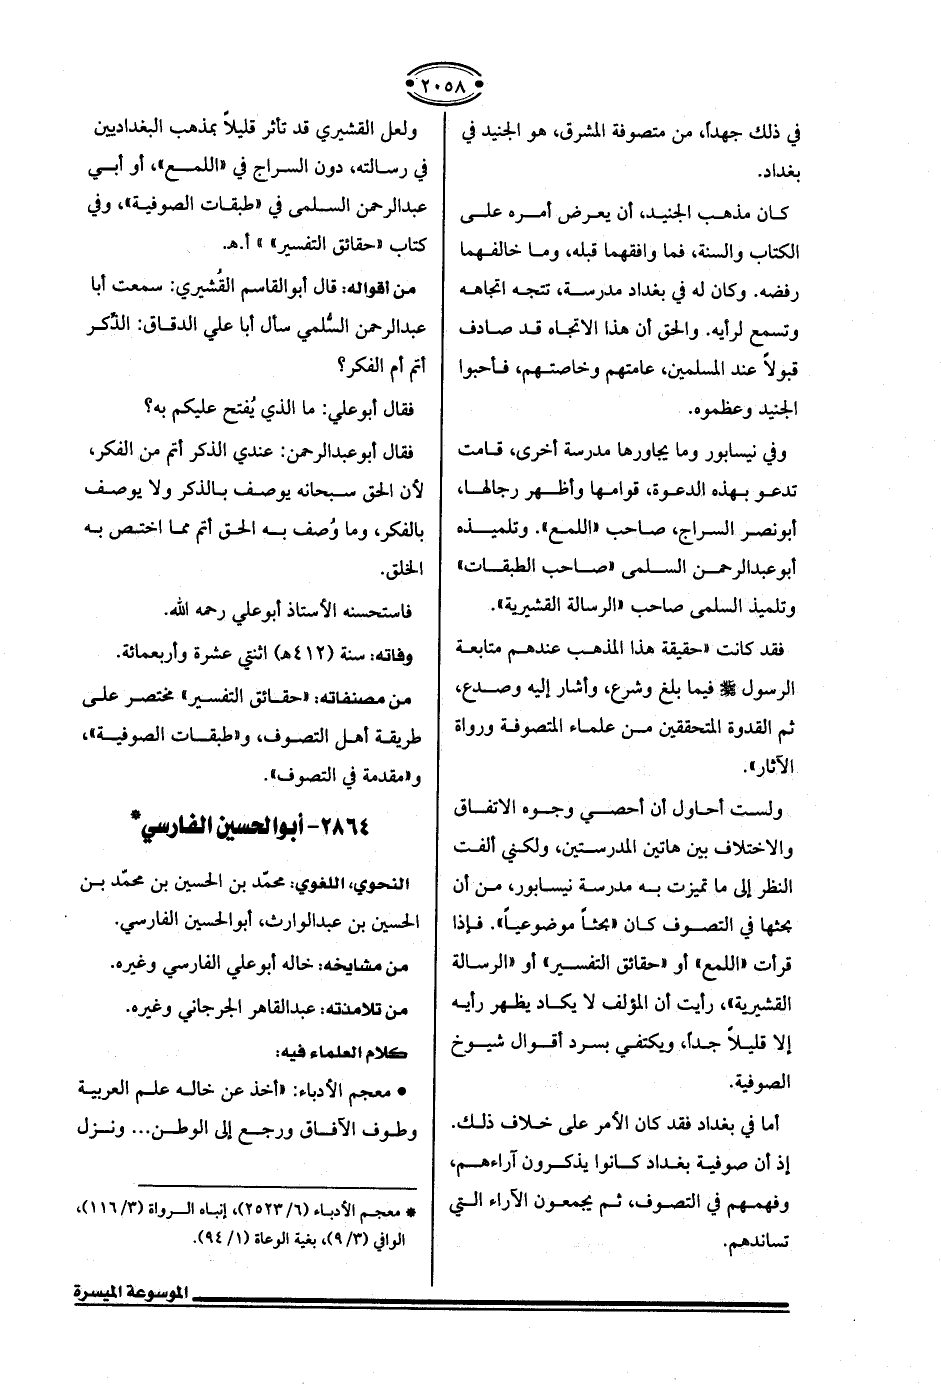 ٢٠٥٨
في ذلك جهداً، من متصوفة المشرق، هو الجنيد في
بغداد.
كان مذهب الجنيد، أن يعرض أمره على
الكتاب والسنة، فما وافقهما قبله، وما خالفهما
رفضه. وكان له في بغداد مدرسة، تتجه اتجاهه
وتسمع لرأيه. والحق أن هذا الاتجاه قد صادف
قبولاً عند المسلمين، عامتهم وخاصتهم، فأحبوا
الجنيد وعظموه.
وفي نيسابور وما يجاورها مدرسة أخرى، قامت
تدعو بهذه الدعوة، قوامها وأظهر رجالها،
أبونصر السراج، صاحب «اللمع». وتلميذه
أبوعبدالرحمن السلمى «صاحب الطبقات»
وتلميذ السلمى صاحب «الرسالة القشيرية».
فقد كانت «حقيقة هذا المذهب عندهم متابعة
الرسول ﷺ فيما بلغ وشرع، وأشار إليه وصدع،
ثم القدوة المتحققين من علماء المتصوفة ورواة
الآثار».
ولست أحاول أن أحصي وجوه الاتفاق
والاختلاف بين هاتين المدرستين، ولكني ألفت
النظر إلى ما تميزت به مدرسة نيسابور، من أن
بحثها في التصوف كان «بحثاً موضوعياً». فإذا
قرأت «اللمع» أو «حقائق التفسير» أو «الرسالة
القشيرية»، رأيت أن المؤلف لا يكاد يظهر رأيه
إلا قليلاً جداً، ويكتفي بسرد أقوال شيوخ
الصوفية.
أما في بغداد فقد كان الأمر على خلاف ذلك.
إذ أن صوفية بغداد كانوا يذكرون آراءهم،
وفهمهم في التصوف، ثم يجمعون الآراء التي
تساندهم.
ولعل القشيري قد تأثر قليلاً بمذهب البغداديين
في رسالته، دون السراج في «اللمع»، أو أبي
عبدالرحمن السلمى في «طبقات الصوفية»، وفي
كتاب «حقائق التفسير» » أ.هـ.
من أقواله: قال أبوالقاسم القُشيري: سمعت أبا
عبدالرحمن السُّلمي سأل أبا علي الدقاق: الذّكر
أتم أم الفكر؟
فقال أبوعلي: ما الذي يُفتح عليكم به؟
فقال أبوعبدالرحمن: عندي الذكر أتم من الفكر،
لأن الحق سبحانه يوصف بالذكر ولا يوصف
بالفكر، وما وُصف به الحق أتم مما اختص به
الخلق.
فاستحسنه الأستاذ أبوعلي رحمه الله.
وفاته: سنة (٤١٢هـ) اثنتي عشرة وأربعمائة.
من مصنفاته: «حقائق التفسير» مختصر على
طريقة أهل التصوف، و«طبقات الصوفية»،
و«مقدمة في التصوف».
٢٨٦٤- أبوالحسين الفارسي*
النحوي، اللغوي: محمّد بن الحسين بن محمّد بن
الحسين بن عبدالوارث، أبوالحسين الفارسي.
من مشايخه: خاله أبوعلي الفارسي وغيره.
من تلامذته: عبدالقاهر الجرجاني وغيره.
كلام العلماء فيه:
• معجم الأدباء: «أخذ عن خاله علم العربية
وطوف الآفاق ورجع إلى الوطن... ونزل
* معجم الأدباء (٦/ ٢٥٢٣)، إنباه الرواة (٣/ ١١٦)،
الوافي (٣/ ٩)، بغية الوعاة (١/ ٩٤).
الموسوعة الميسرة